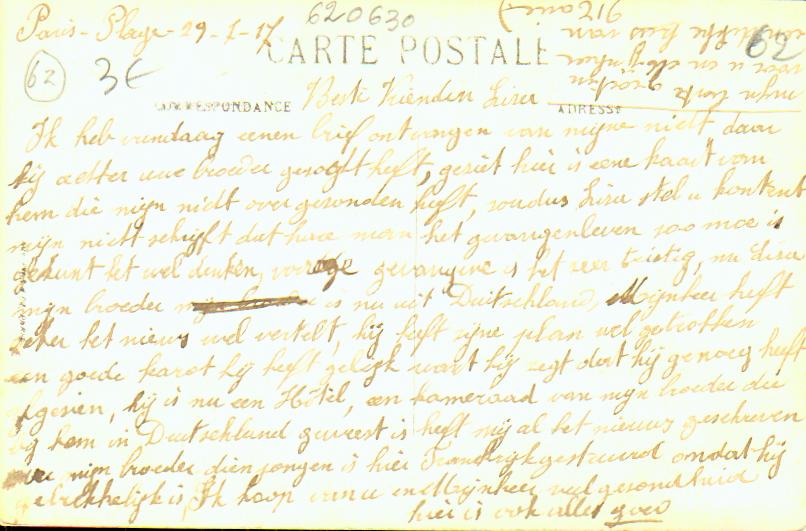 Paris-Plage - 29-1-17
620630
CARTE POSTALE
62
62
3€
CORRESPONDANCE
Beste Vrienden Liza
ADRESSE
Ik heb vandaag eenen brief ontvangen van mijne nicht daar
hij achter uwe broeder gesogt heft, gesiet hier is eene kaart van
hem die mijn nicht over gesonden heft, Liza stel u kontent
mijn nicht schrijft dat haar man het gevangenleven zoo moe is
gekunt het wel denken, voor gevangene is het zeer triestig, nu Liza
mijn broeder is nu uit Duitschland, Mijnheer heft
zeker het nieuws wel vertelt, hij heft zijne plan wel getrokken
een goede karot hij heeft gelijk want hij zegt dat hij genoeg heeft
afgesien, hij is nu een Hôtel, een kameraad van mijn broeder die
bij hem in Duitschland geweest is heft mij al het nieuws geschreven
over mijn broeder dien jongen is hier Frankrijk gestuurd omdat hij
is, Ik hoop van u en Mijnheer wel gesondheid
hier is ook alles goed